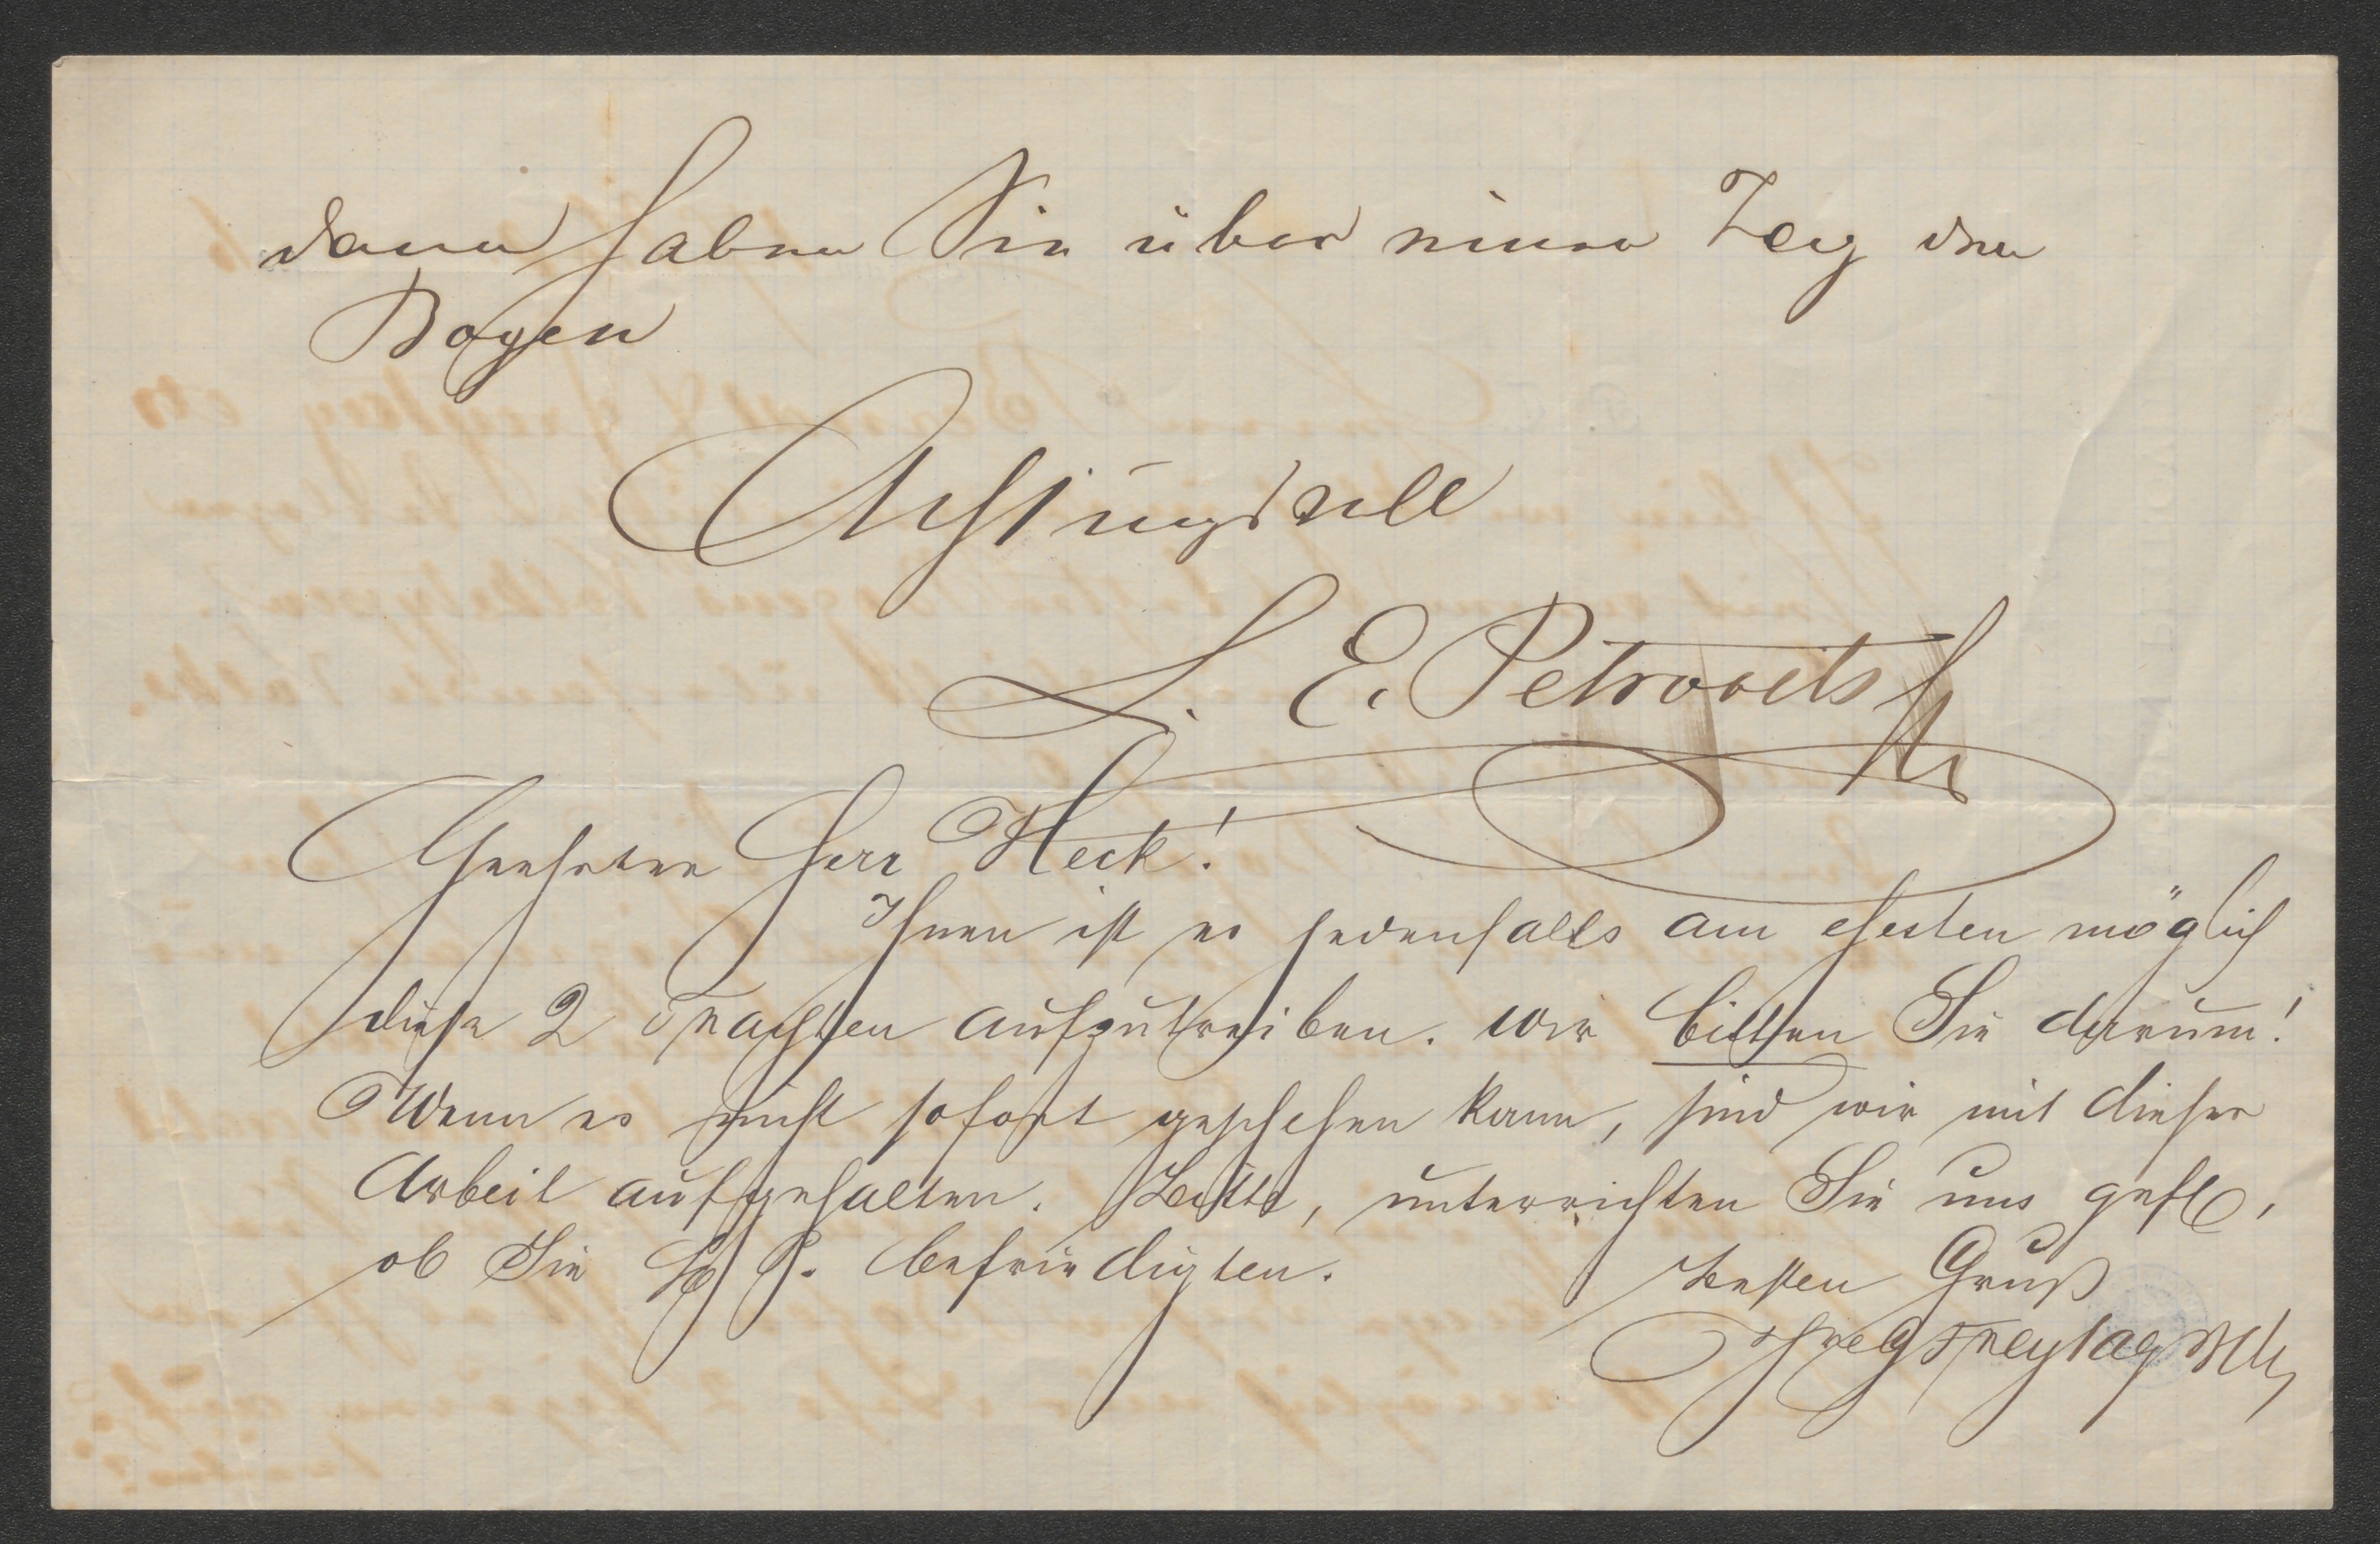 dann haben Sie über einen Tag den
Bogen
Achtungsvoll
L. E. Petrovits
Geehrter Herr Heck!
Ihnen ist es jedenfalls am ehesten möglich
diese 2 Trachten aufzutreiben. Wir bitten Sie darum!
Wenn es nicht sofort geschehen kann, sind wir mit dieser
Arbeit aufgehalten. Bitte, unterrichten Sie uns gefl,
ob Sie H P. befriedigten.
Besten Gruß
Freytag